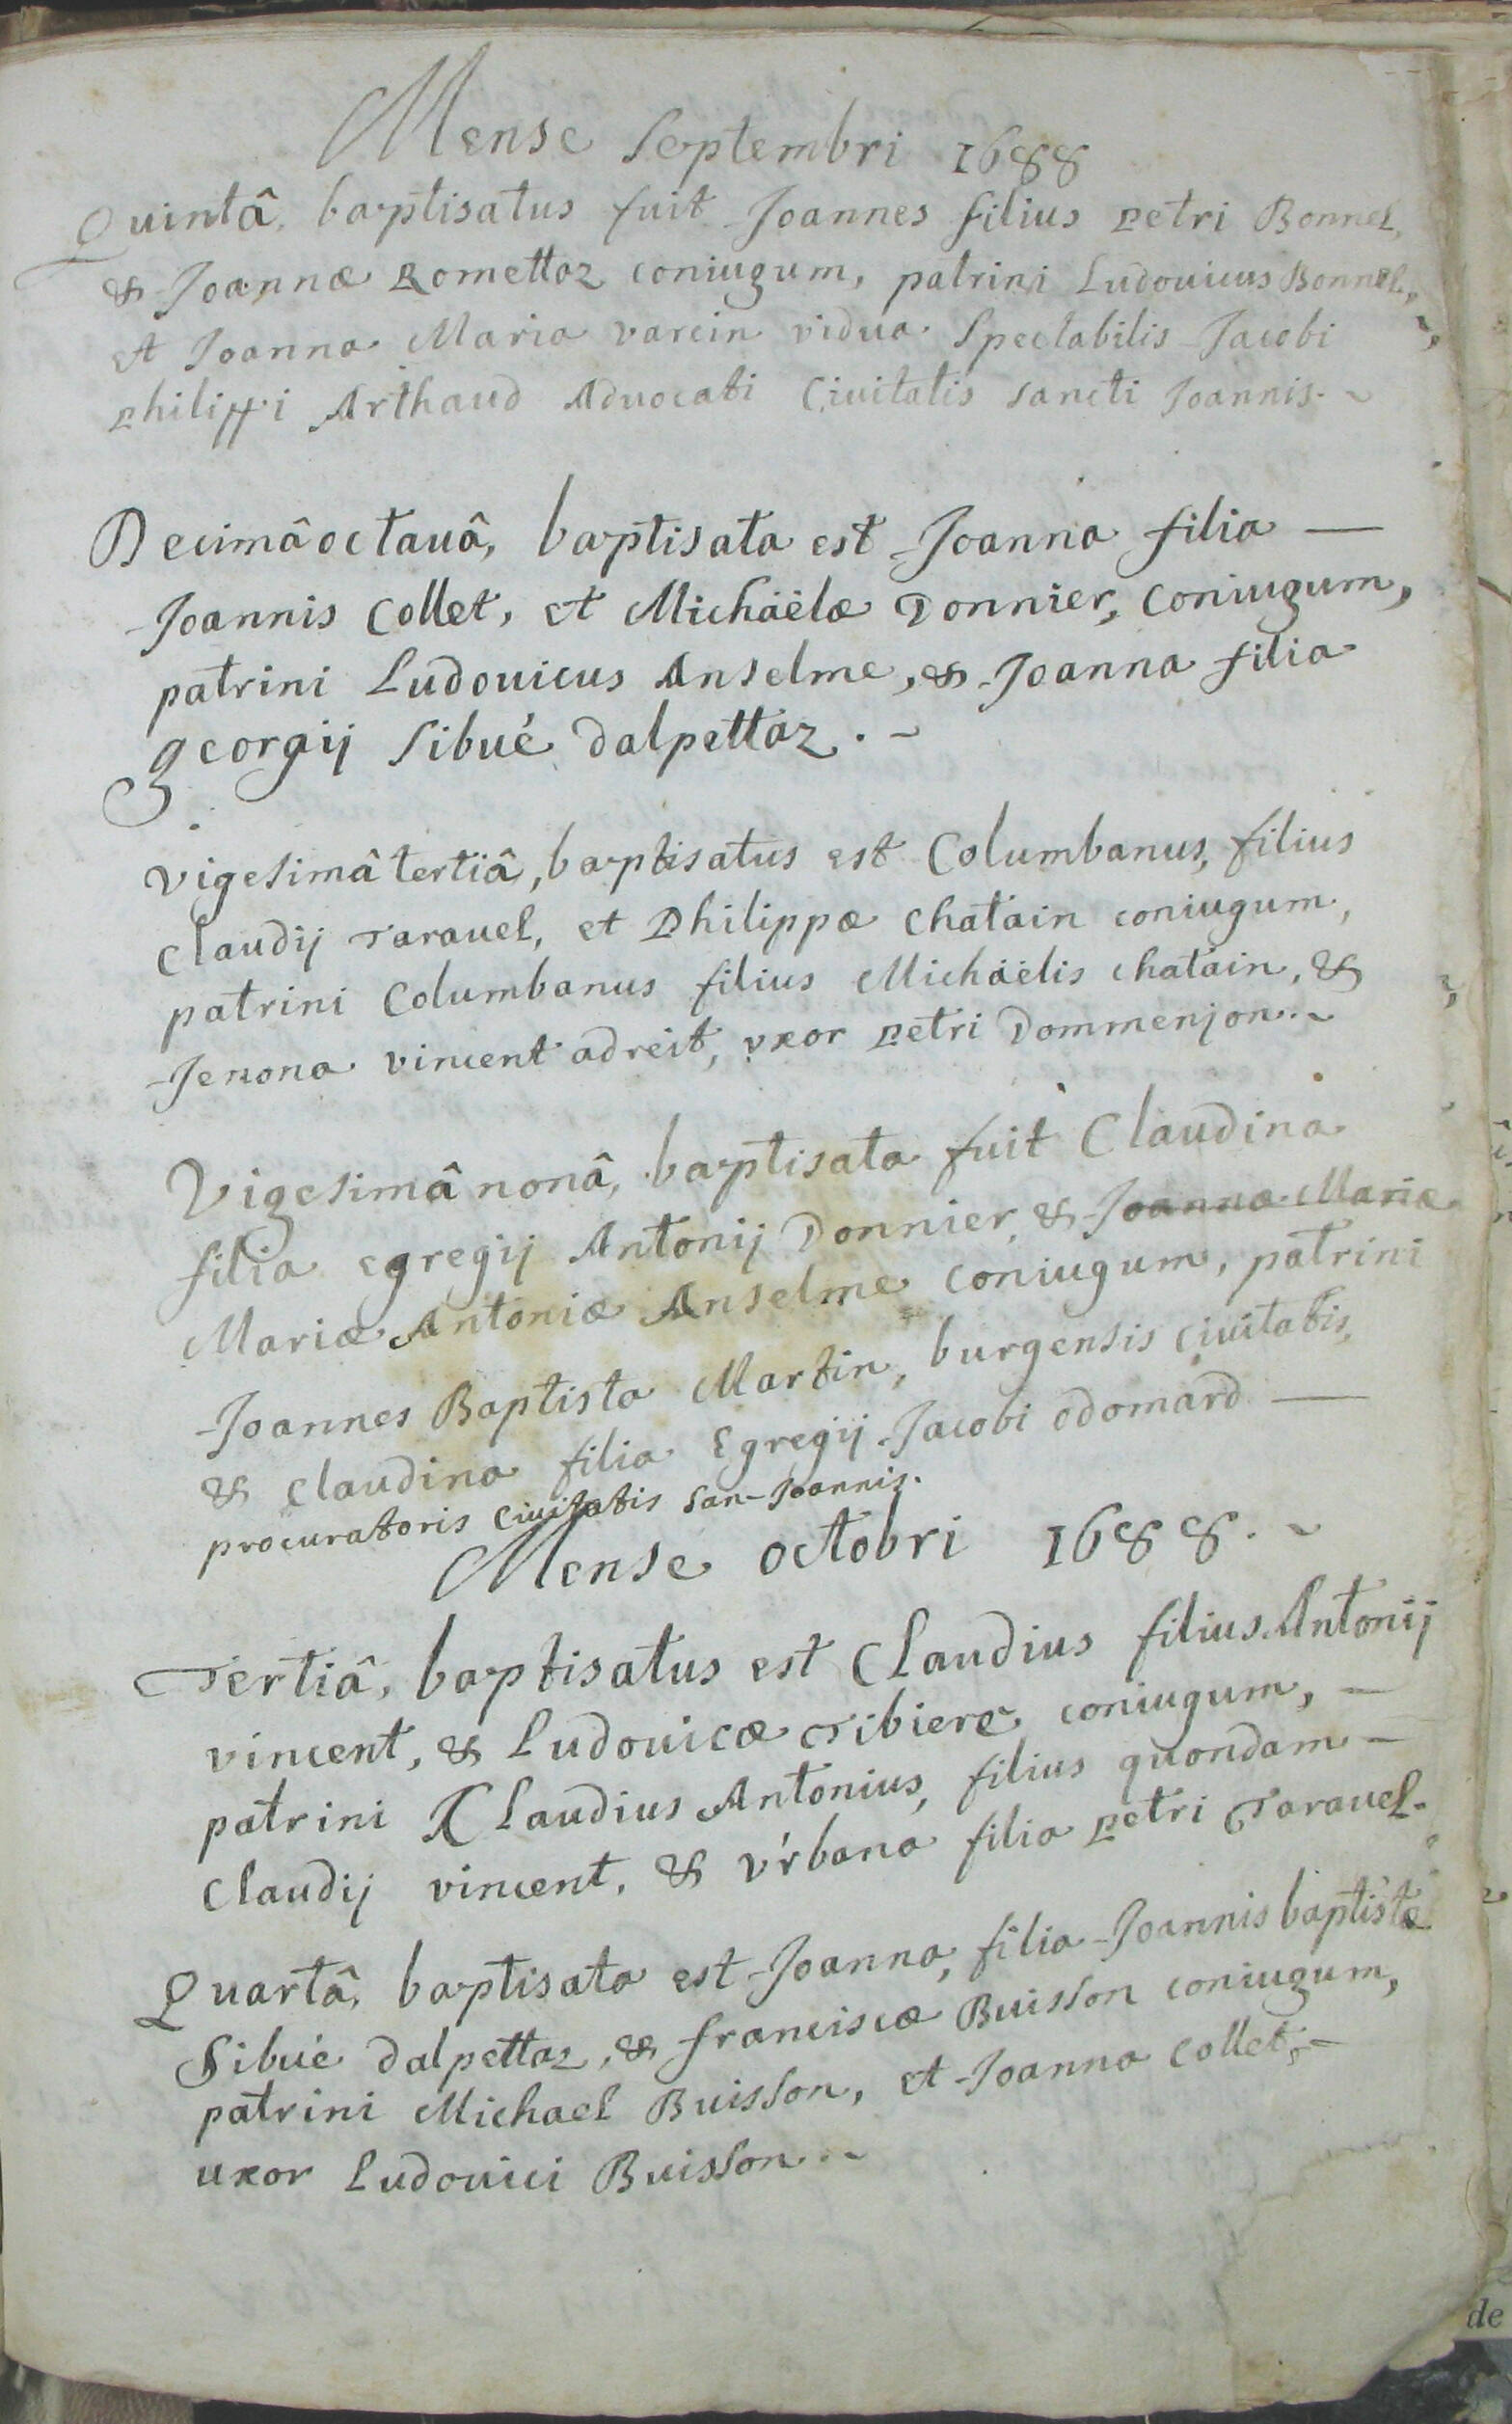 Mense Septembri 1688
Quintâ, baptisatus fuit Joannes filius Petri Bonnel,
& Joannæ Romettaz coniugum, patrini Ludouicus Bonnel,
et Joanna Maria varcin vidua Spectabilis Jacobi
Philippi Arthaud Aduocati Ciuitatis sancti Joannis.
Decimâ octauâ, baptisata est Joanna filia —
Joannis Collet, et Michaëlæ Donnier, coniugum,
patrini Ludouicus Anselme, & Joanna filia
georgij Sibué dalpettaz.
vigesimâ tertiâ, baptisatus est Columbanus, filius
Claudij Tarauel, et Philippæ Chatain coniugum,
patrini Columbanus filius Michaëlis chatain, &
Jenona vincent adreit, vxor Petri Dommenjon.
Vigesimâ nonâ, baptisata fuit Claudina
filia egregij Antonij Donnier, & Joannæ Mariæ
Mariæ Antoniæ Anselme coniugum, patrini
Joannes Baptista Martin, burgensis ciuitatis,
& Claudina filia Egregij Jacobi odomard —
procuratoris Ciuitatis San-Joannis.
Mense octobri 1688.
Tertiâ, baptisatus est Claudius filius Antonij
vincent, & Ludouicæ Tibiere coniugum, —
patrini Claudius Antonius, filius quondam —
Claudij vincent, & vrbana filia Petri Tarauel.
Quartâ, baptisata est Joanna, filia Joannis baptistæ
Sibué dalpettaz, & franciscæ Buisson coniugum,
patrini Michael Buisson, et Joanna Collet, —
uxor Ludouici Buisson.
de